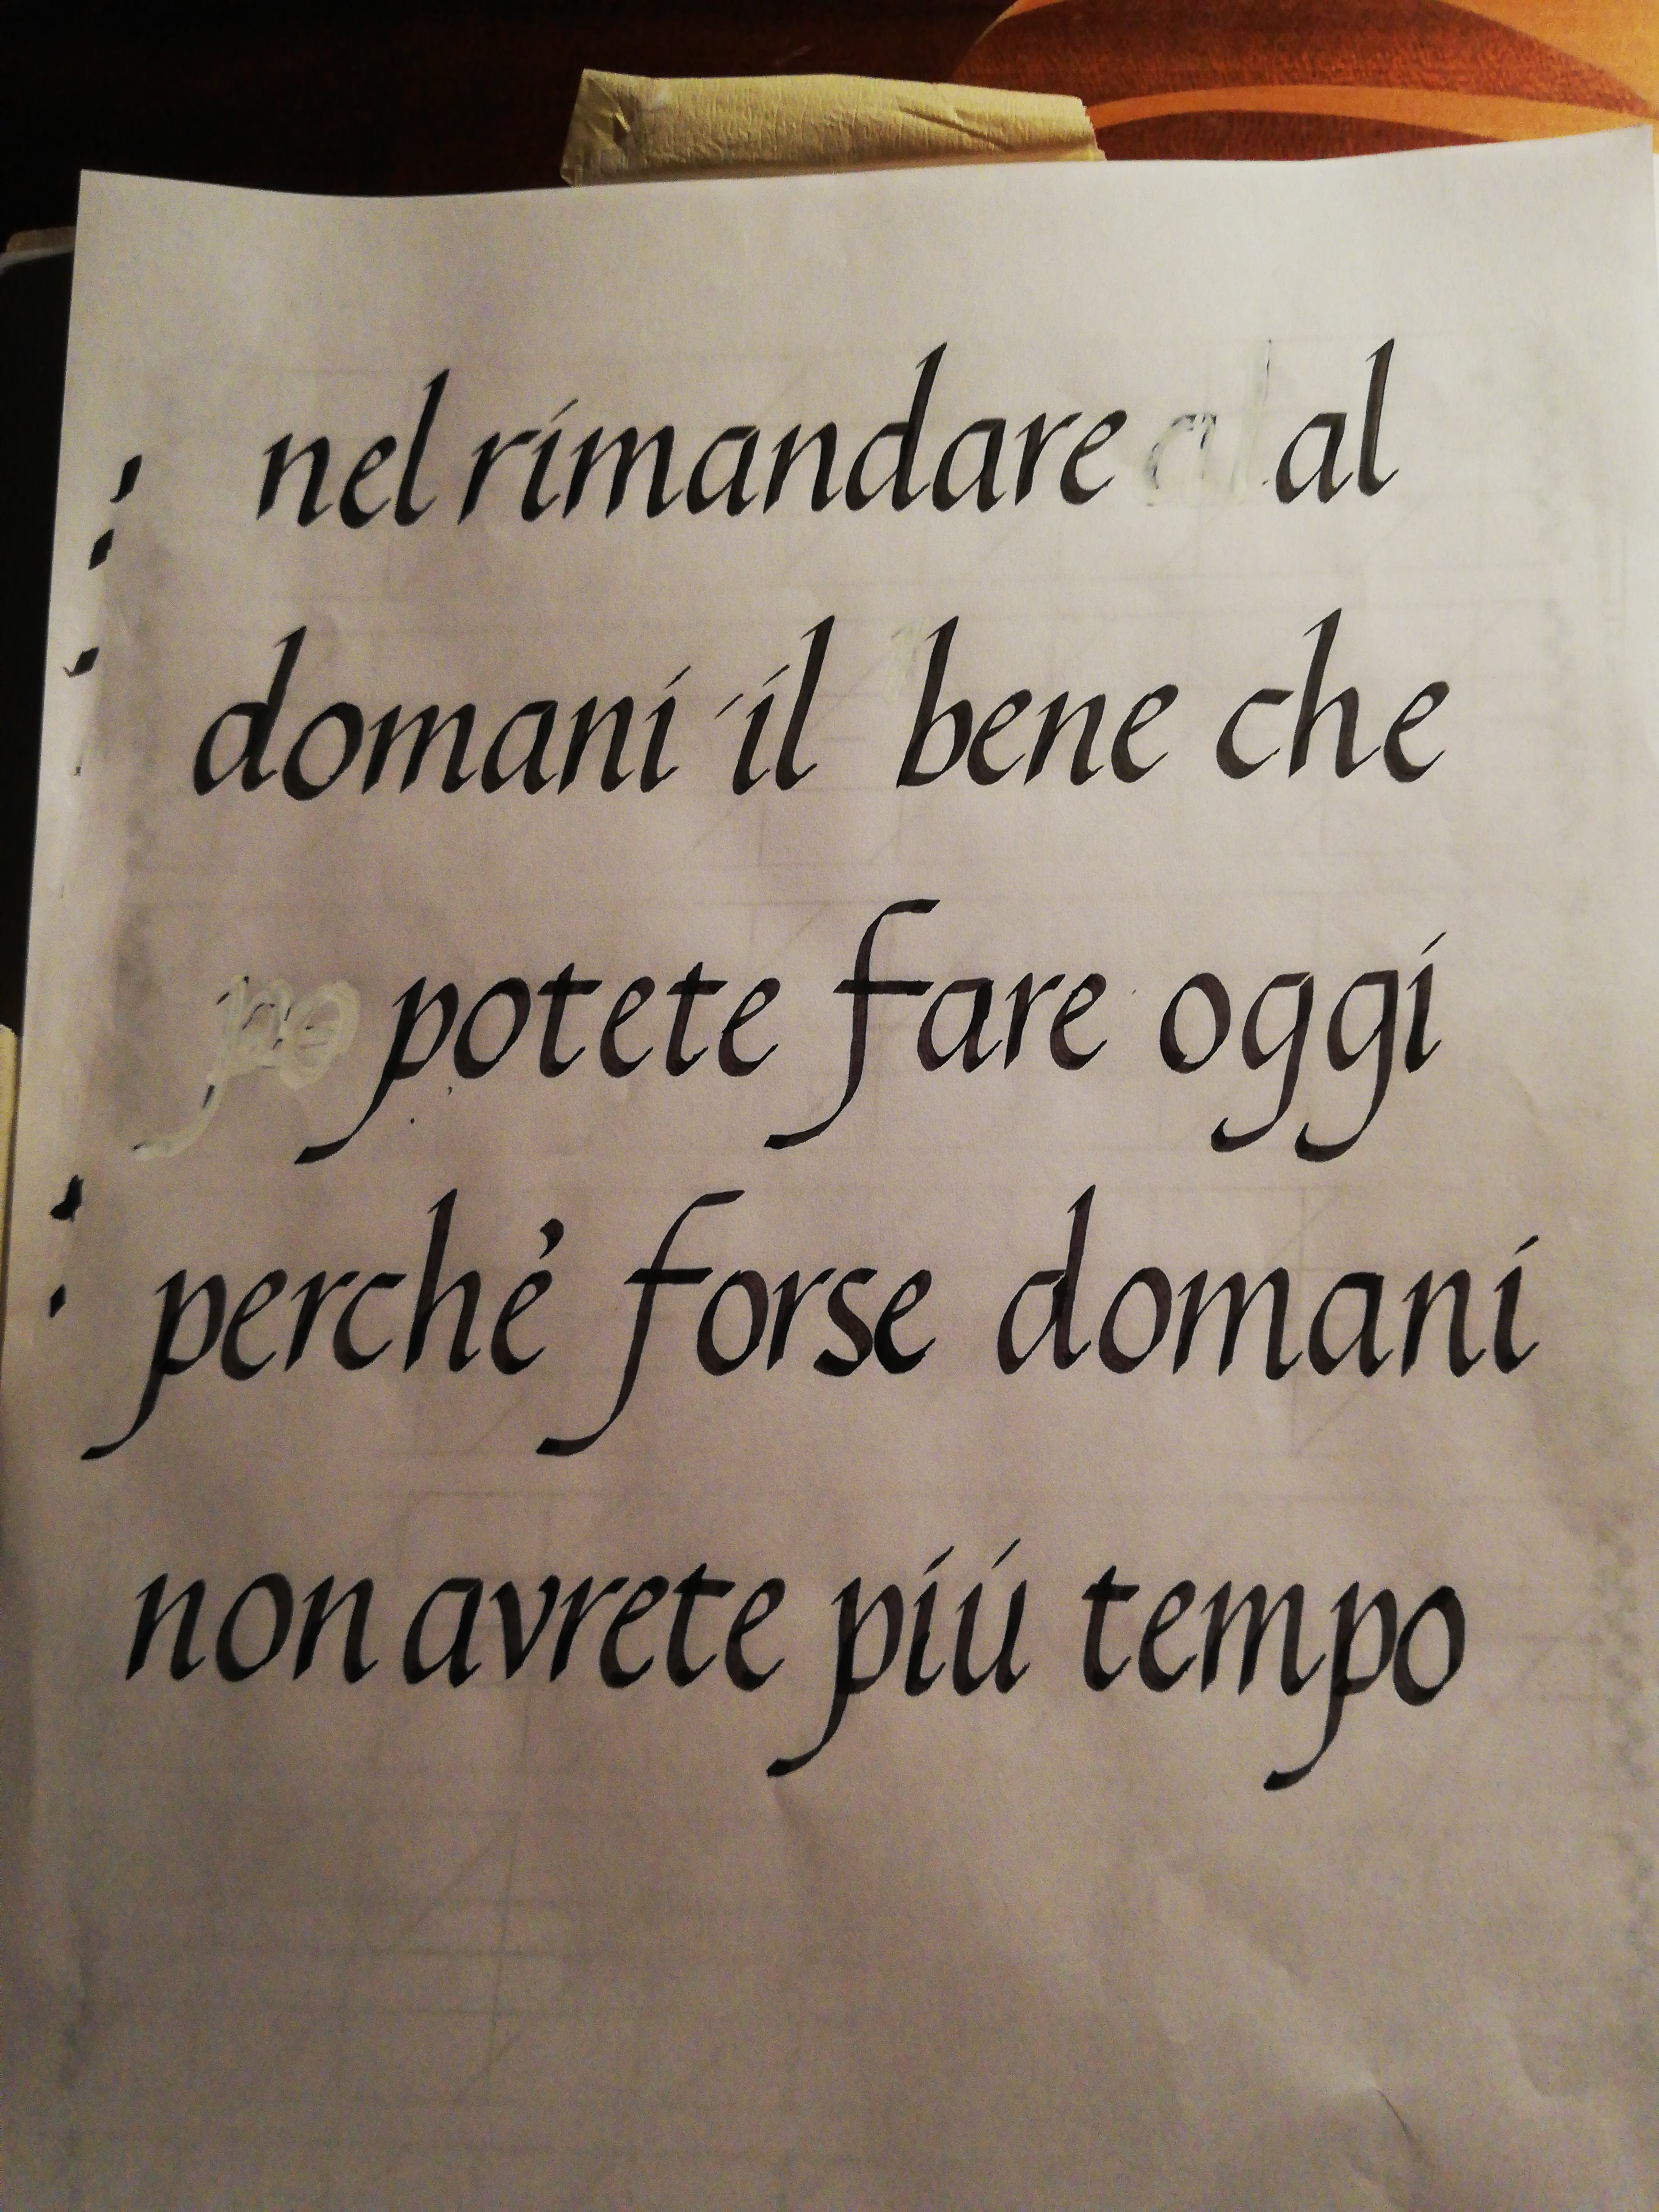 nel rimandare al
domani il bene che
potete fare oggi
perché forse domani
non avrete piú tempo